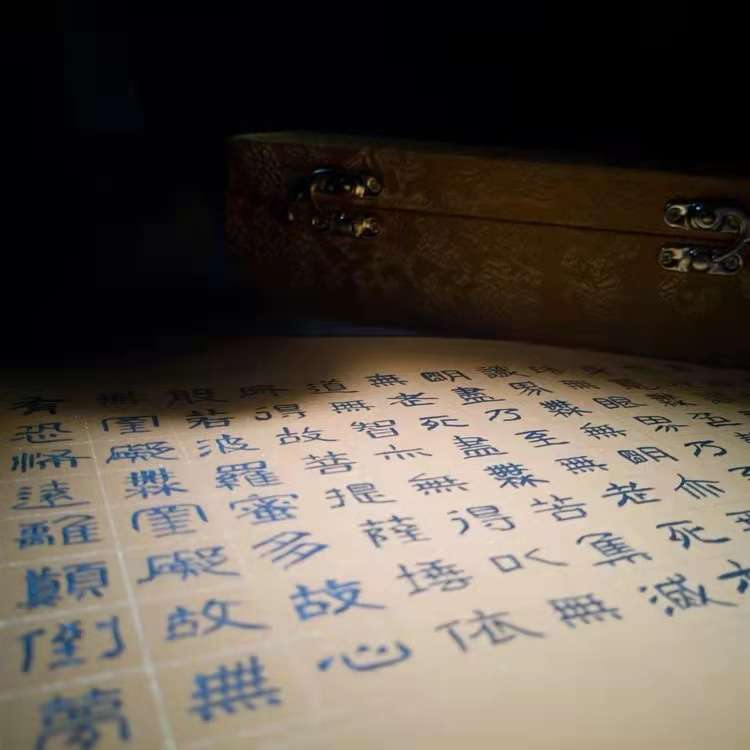 眼界乃
識界無無明亦
明盡乃至無老死
無老死盡無苦集滅
道無智亦無得以無
所得故菩提薩埵依
般若波羅蜜多故心
無罣礙無罣礙故無
有恐怖遠離顛倒夢